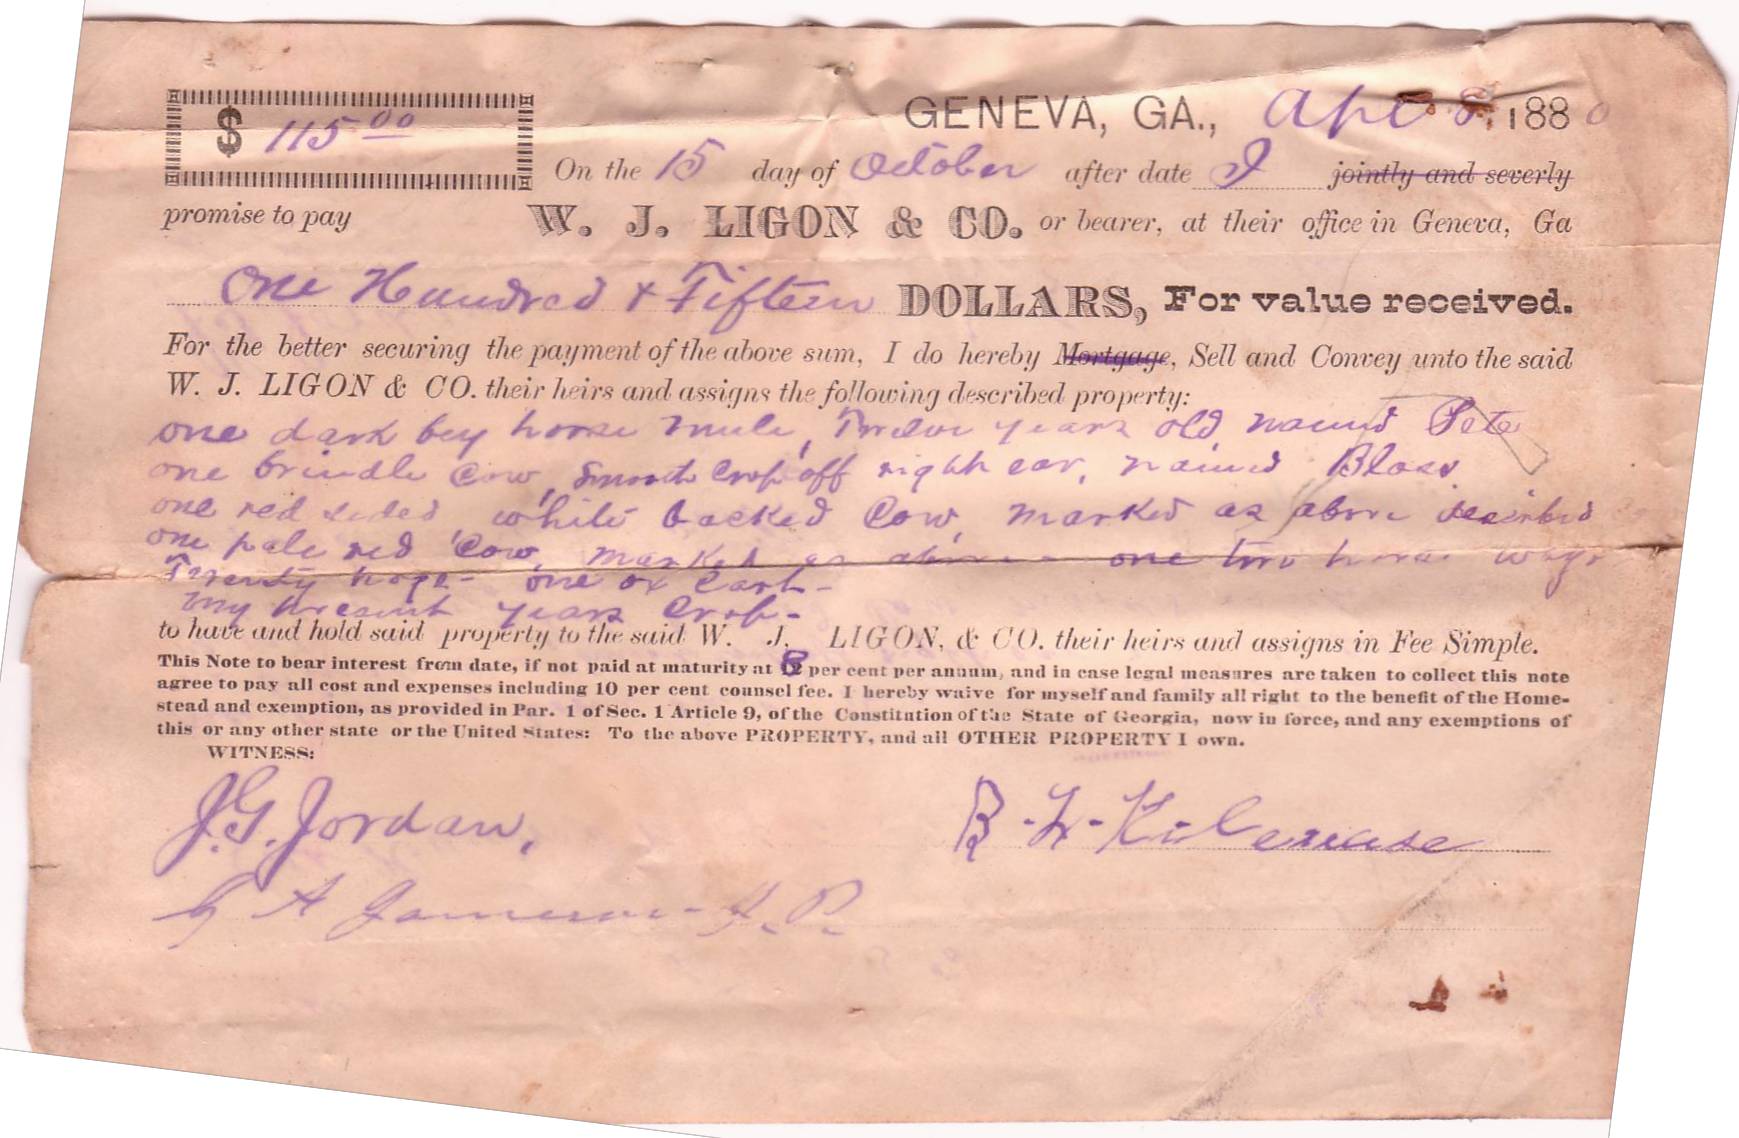 $ 115 00
GENEVA, GA., Apr 8, 1880
On the 15 day of October after date I jointly and severly
promise to pay W. J. LIGON & CO. or bearer, at their office in Geneva, Ga
One Hundred & Fifteen DOLLARS, For value received.
For the better securing the payment of the above sum, I do hereby Mortgage, Sell and Convey unto the said
W. J. LIGON & CO. their heirs and assigns the following described property:
one dark bey horse mule, Twelve years old, named Pete
one brindle Cow, Smooth Crop off right ear, named
one red sided, white backed Cow, marked as above described
one pale red Cow, marked as above - one two horse
Twenty hogs - one ox Cart -
My present years Crop -
to have and hold said property to the said W. J. LIGON, & CO. their heirs and assigns in Fee Simple.
This Note to bear interest from date, if not paid at maturity at 8 per cent per annum, and in case legal measures are taken to collect this note
agree to pay all cost and expenses including 10 per cent counsel fee. I hereby waive for myself and family all right to the benefit of the Home-
stead and exemption, as provided in Par. 1 of Sec. 1 Article 9, of the Constitution of the State of Georgia, now in force, and any exemptions of
this or any other state or the United States: To the above PROPERTY, and all OTHER PROPERTY I own.
WITNESS:
J. G. Jordan, B. L.
G A Jameson - J. P.